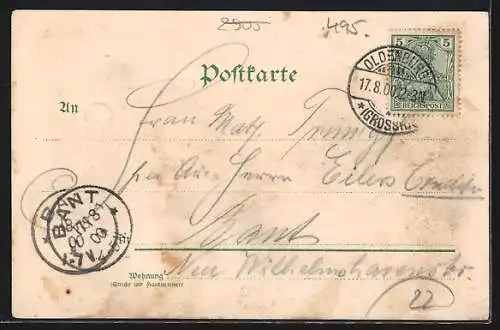 2505
495.
Postkarte
5 5
REICHSPOST
OLDENBURG
17.8.00.2-3N
*(GROSSH.)*
An
Frau Math.
Herrn Eilers
Bant
Neu Wilhelmshavenerstr.
BANT
17.8.
00
Wohnung
(Straße und Hausnummer)
22